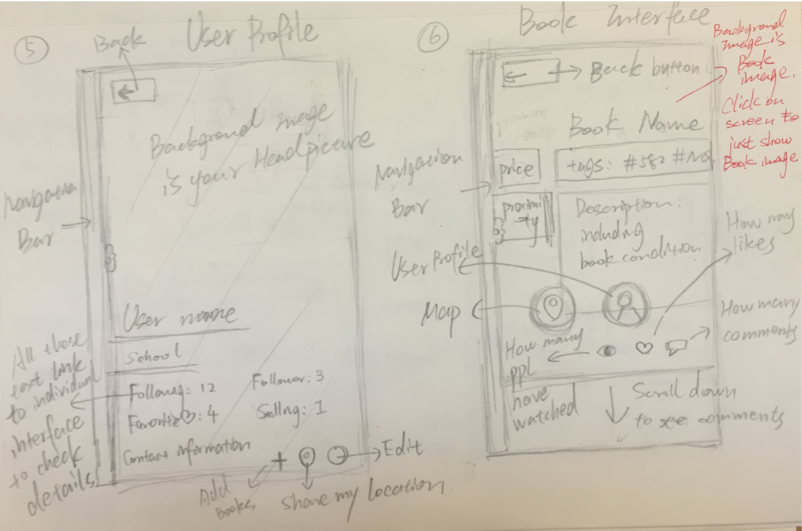 5
User Profile
Back
←
Background image
is your Headpicture
Navigation
Bar
User name
School
Following: 12
Follower: 3
Favorite♡: 4
Selling: 1
Contact information
All those
text link
to individual
interface
to check
details
+
Add
Books
Share my location
Edit
6
Book Interface
←
Back button
Background
image is
Book
image.
Click on
screen to
just show
Book image
Book Name
price
tags: #582 #
Navigation
Bar
proximi
ty
Description:
including
book condition
User Profile
Map
How many
likes
How many
comments
How many
ppl
have
watched
Scroll down
to see comments